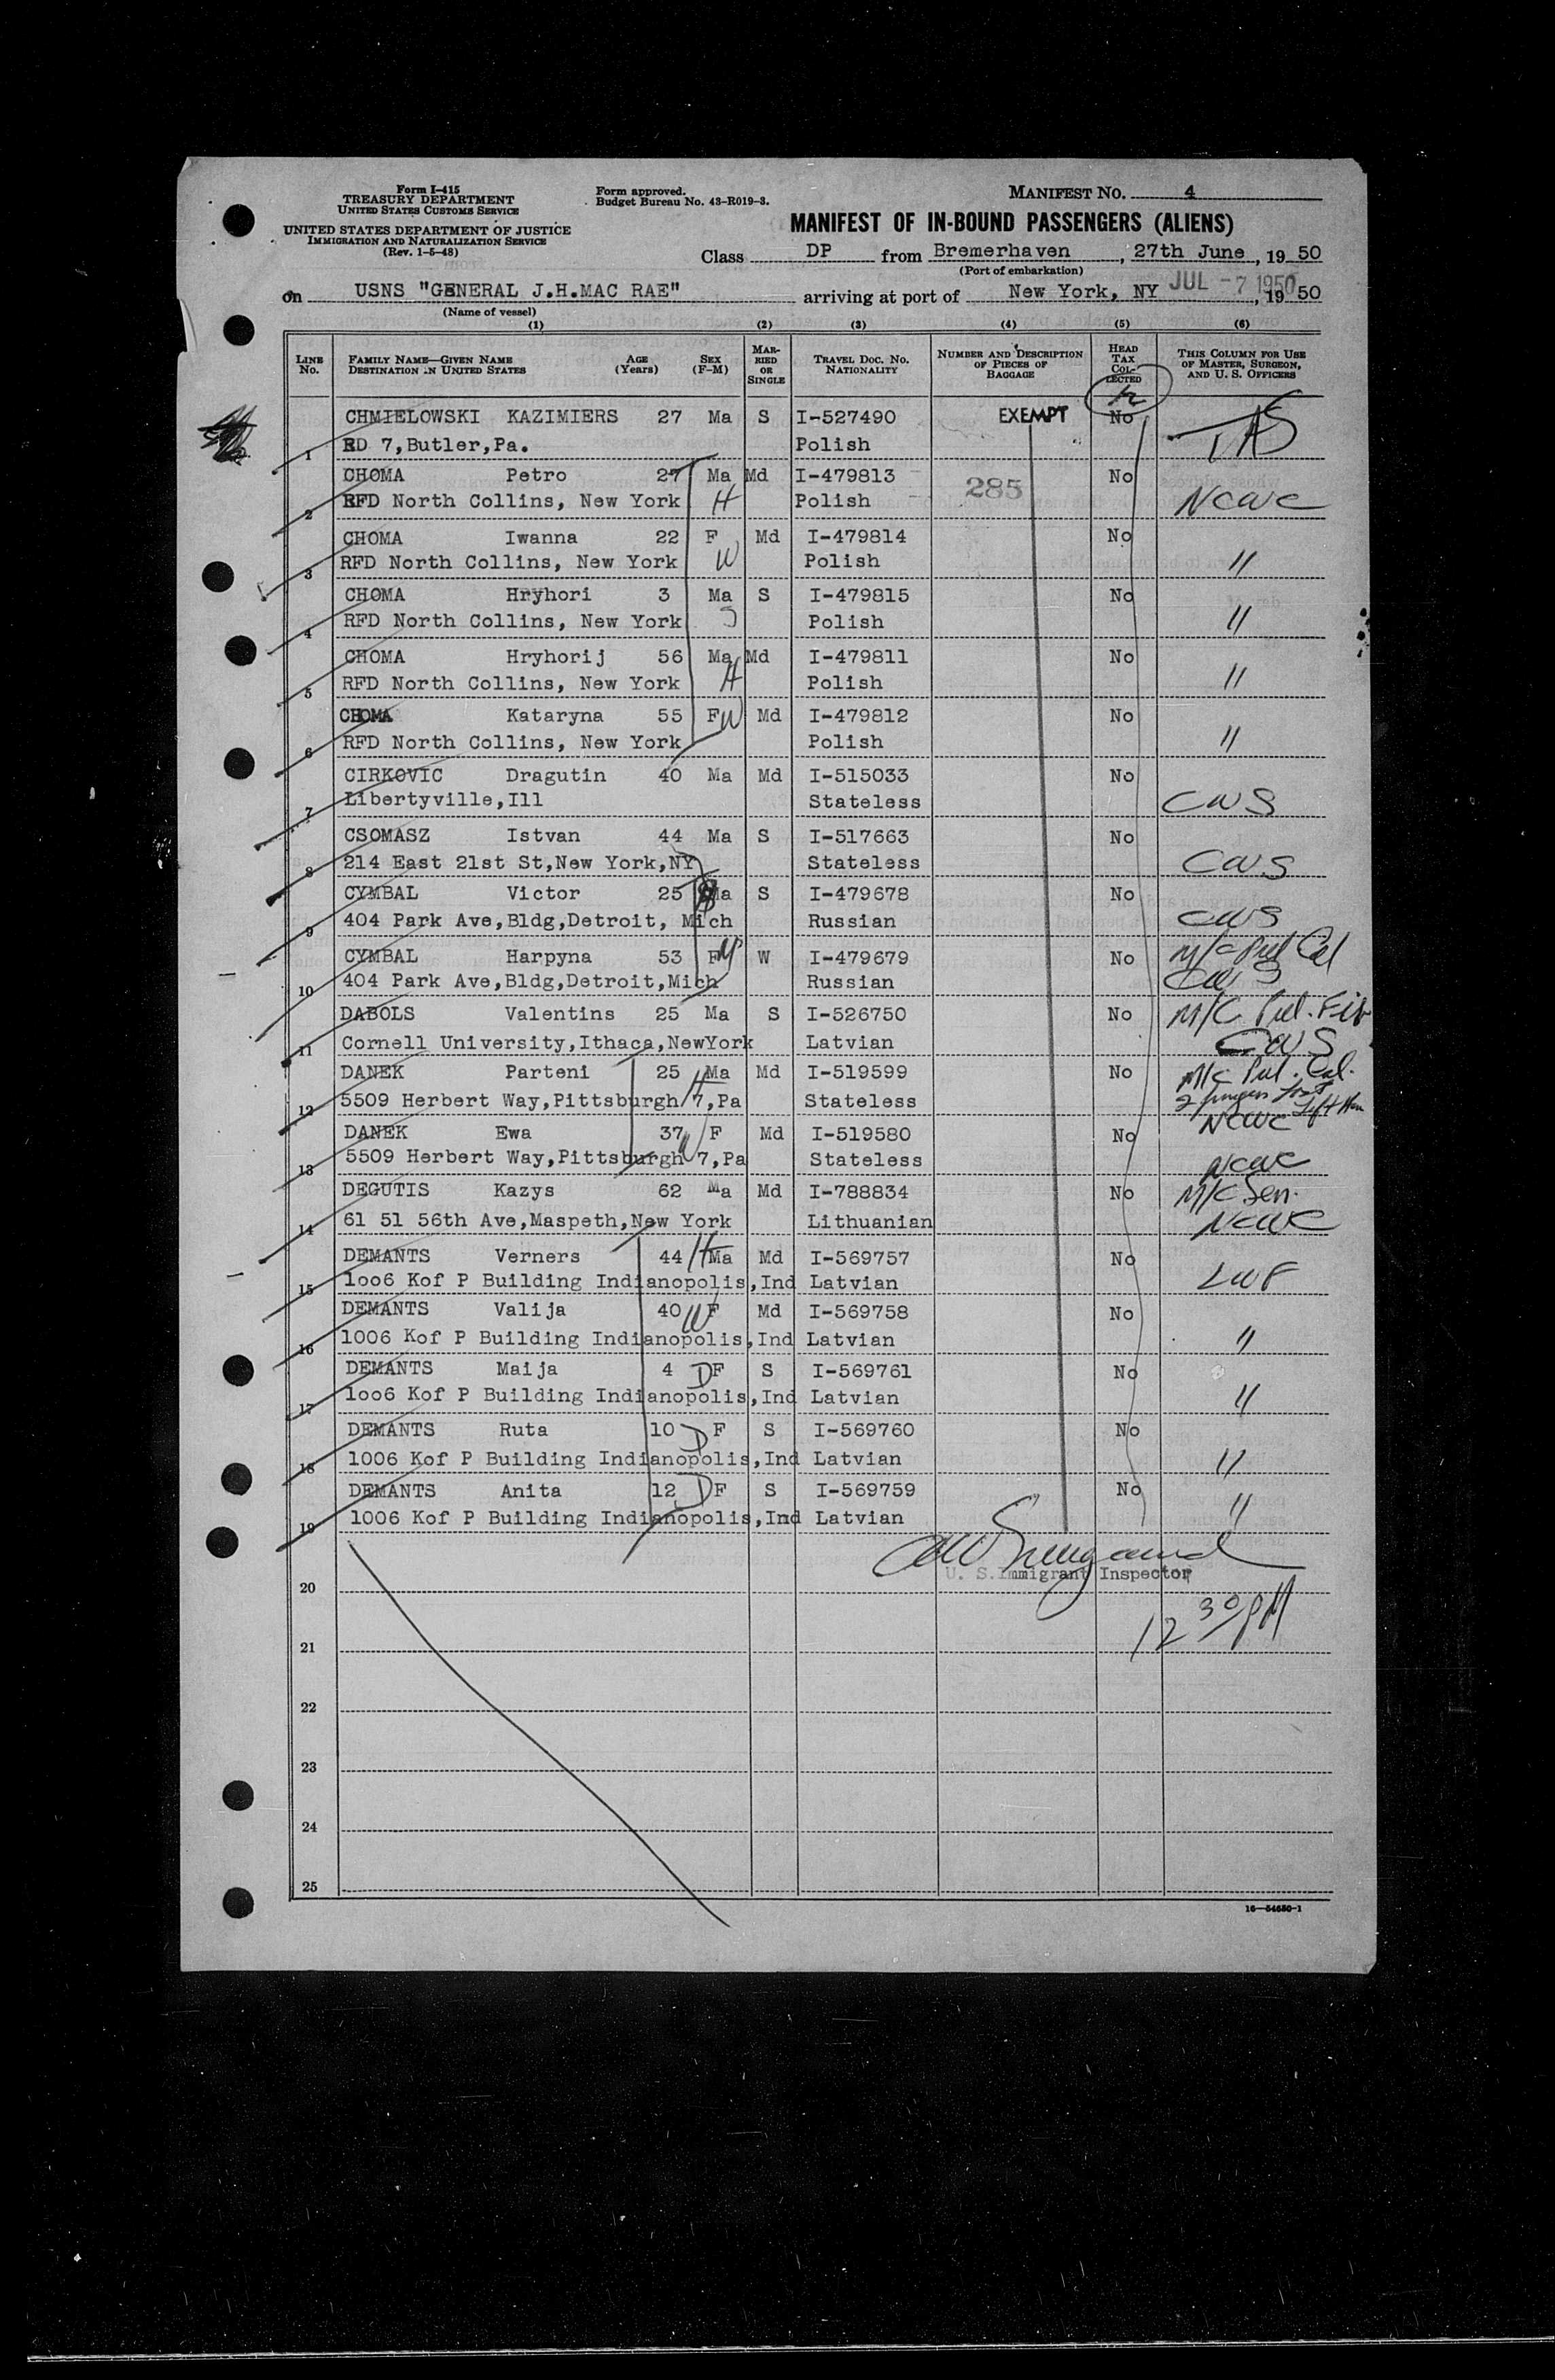 Form I-415
TREASURY DEPARTMENT
UNITED STATES CUSTOMS SERVICE
UNITED STATES DEPARTMENT OF JUSTICE
IMMIGRATION AND NATURALIZATION SERVICE
(Rev. 1-5-48)
Form approved.
Budget Bureau No. 43-R019-3.
MANIFEST NO. 4
MANIFEST OF IN-BOUND PASSENGERS (ALIENS)
Class DP from Bremerhaven, 27th June, 19 50
(Port of embarkation)
on USNS "GENERAL J.H.MAC RAE" arriving at port of New York, NY JUL -7 1950, 19 50
(Name of vessel)
(1) (2) (3) (4) (5) (6)
LINE No. FAMILY NAME—GIVEN NAME DESTINATION IN UNITED STATES AGE (Years) SEX (F-M) MARRIED OR SINGLE TRAVEL DOC. NO. NATIONALITY NUMBER AND DESCRIPTION OF PIECES OF BAGGAGE HEAD TAX COLLECTED THIS COLUMN FOR USE OF MASTER, SURGEON, AND U. S. OFFICERS
CHMIELOWSKI KAZIMIERS 27 Ma S I-527490 EXEMPT No
1 RD 7,Butler,Pa. Polish
CHOMA Petro 27 Ma Md I-479813 285 No
2 RFD North Collins, New York H Polish NCWC
CHOMA Iwanna 22 F Md I-479814 No
3 RFD North Collins, New York W Polish "
CHOMA Hryhori 3 Ma S I-479815 No
4 RFD North Collins, New York S Polish "
CHOMA Hryhorij 56 Ma Md I-479811 No
5 RFD North Collins, New York H Polish "
CHOMA Kataryna 55 F W Md I-479812 No
6 RFD North Collins, New York Polish "
CIRKOVIC Dragutin 40 Ma Md I-515033 No
7 Libertyville,Ill Stateless CWS
CSOMASZ Istvan 44 Ma S I-517663 No
8 214 East 21st St,New York,NY Stateless CWS
CYMBAL Victor 25 Ma S I-479678 No
9 404 Park Ave,Bldg,Detroit, Mich Russian CWS
CYMBAL Harpyna 53 F M W I-479679 No M/C Pul Cal
10 404 Park Ave,Bldg,Detroit,Mich Russian CWS
DABOLS Valentins 25 Ma S I-526750 No M/C Pul. Fib
11 Cornell University,Ithaca,NewYork Latvian CWS
DANEK Parteni 25 H Ma Md I-519599 No M/C Pul. Cal.
2 fingers lost Left Han
12 5509 Herbert Way,Pittsburgh 7,Pa Stateless NCWC
DANEK Ewa 37 W F Md I-519580 No
13 5509 Herbert Way,Pittsburgh 7,Pa Stateless NCWC
DEGUTIS Kazys 62 Ma Md I-788834 No M/C Sen.
14 61 51 56th Ave,Maspeth,New York Lithuanian NCWC
DEMANTS Verners 44 H Ma Md I-569757 No
15 1oo6 Kof P Building Indianopolis,Ind Latvian LWF
DEMANTS Valija 40 W F Md I-569758 No
16 1006 Kof P Building Indianopolis,Ind Latvian "
DEMANTS Maija 4 D F S I-569761 No
17 1oo6 Kof P Building Indianopolis,Ind Latvian "
DEMANTS Ruta 10 D F S I-569760 No
18 1006 Kof P Building Indianopolis,Ind Latvian "
DEMANTS Anita 12 D F S I-569759 No
19 1006 Kof P Building Indianopolis,Ind Latvian "
U. S. Immigrant Inspector
20
12 30 PM
21
22
23
24
25
16—54680-1